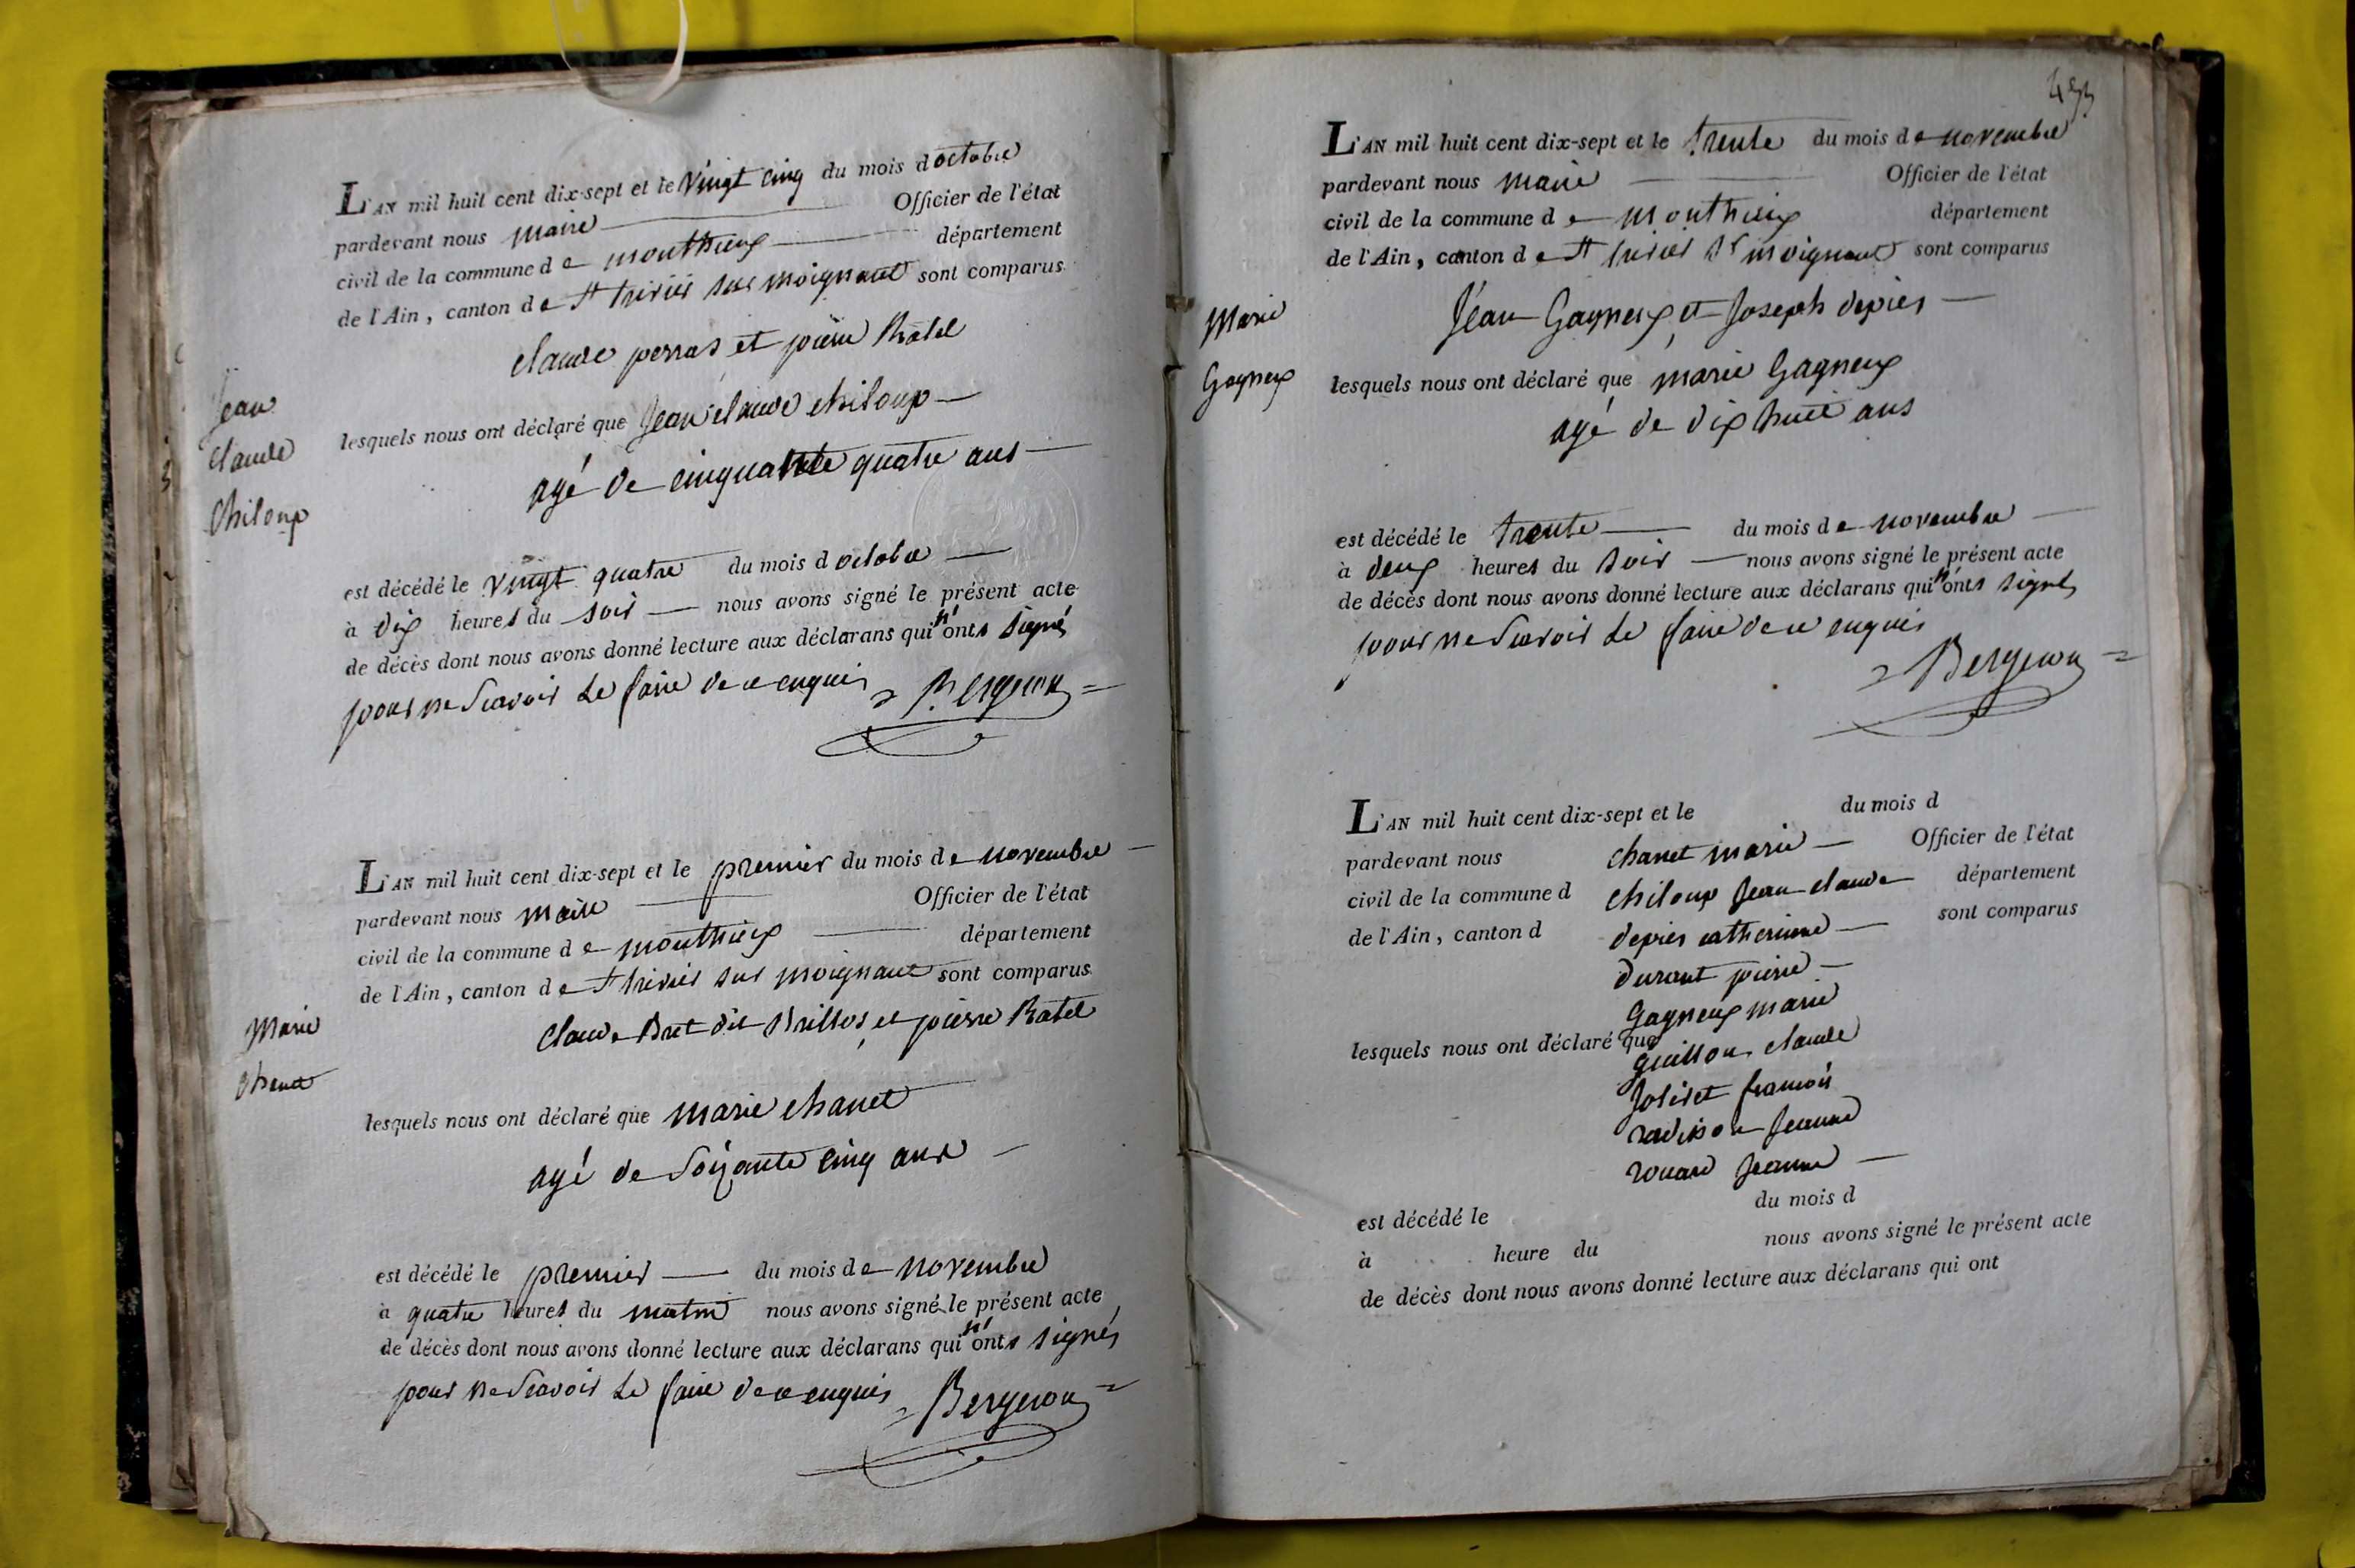 L'AN mil huit cent dix-sept et le vingt cinq du mois d octobre
pardevant nous maire Officier de l'état
civil de la commune d e monthieux département
de l'Ain, canton d e St trivier sur moignant sont comparus
claude perras et pierre Ratel
Jean
claude
chiloup
lesquels nous ont déclaré que Jean claude chiloup
agé de cinquante quatre ans
est décédé le vingt quatre du mois d octobre
à dix heures du soir nous avons signé le présent acte
de décès dont nous avons donné lecture aux déclarans qui n'onts signé
pour ne Scavoir Le faire de ce enquis Bergeron
L'AN mil huit cent dix-sept et le premier du mois d e novembre
pardevant nous maire Officier de l'état
civil de la commune d e monthieux département
de l'Ain, canton d e St trivier sur moignant sont comparus
Marie
chanet
claude Bret dit et pierre Ratel
lesquels nous ont déclaré que marie chanet
agé de Soixante cinq ans
est décédé le premier du mois d e novembre
à quatre heures du matin nous avons signé le présent acte
de décès dont nous avons donné lecture aux déclarans qui n'onts signés
pour ne Scavoir Le faire de ce enquis Bergeron
L'AN mil huit cent dix-sept et le trente du mois d e novembre
pardevant nous maire Officier de l'état
civil de la commune d e monthieux département
de l'Ain, canton d e St trivier Sr moignant sont comparus
Marie
Gagneux
Jean Gagneux et Joseph depier
lesquels nous ont déclaré que marie Gagneux
agé de dix huit ans
est décédé le trente du mois d e novembre
à deux heures du soir nous avons signé le présent acte
de décès dont nous avons donné lecture aux déclarans qui n'onts signés
pour ne Scavoir Le faire de ce enquis
Bergeron
L'AN mil huit cent dix-sept et le du mois d
pardevant nous chanet marie Officier de l'état
civil de la commune d chiloup Jean claude département
de l'Ain, canton d depier catherinne sont comparus
durant pierre
Gagneux marie
lesquels nous ont déclaré que guillon claude
Jolivet francois
radisson Jeanne
rouard Jeanne
est décédé le du mois d
à heure du nous avons signé le présent acte
de décès dont nous avons donné lecture aux déclarans qui ont